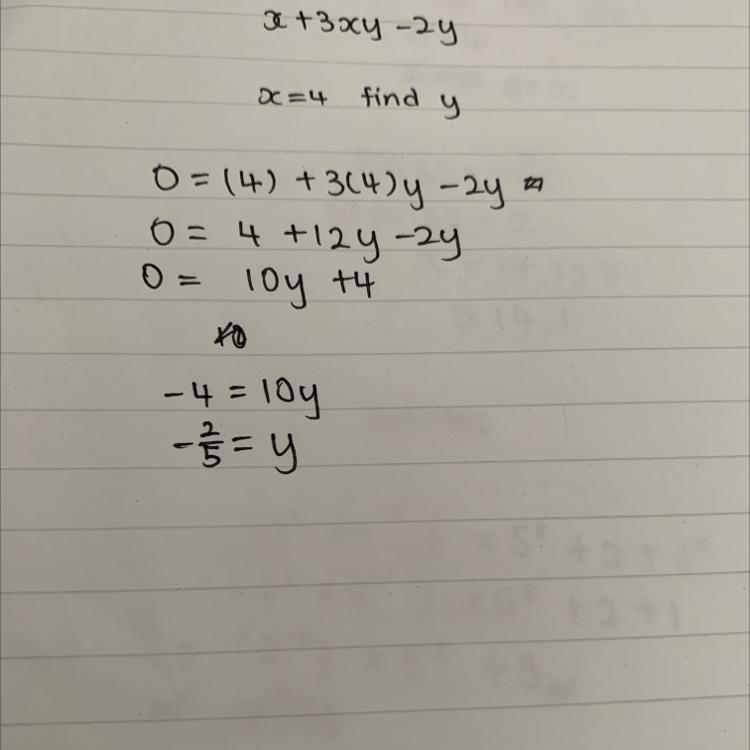 x + 3xy - 2y
x = 4 find y
0 = (4) + 3(4)y - 2y
0 = 4 + 12y - 2y
0 = 10y + 4
-4 = 10y
-2/5 = y